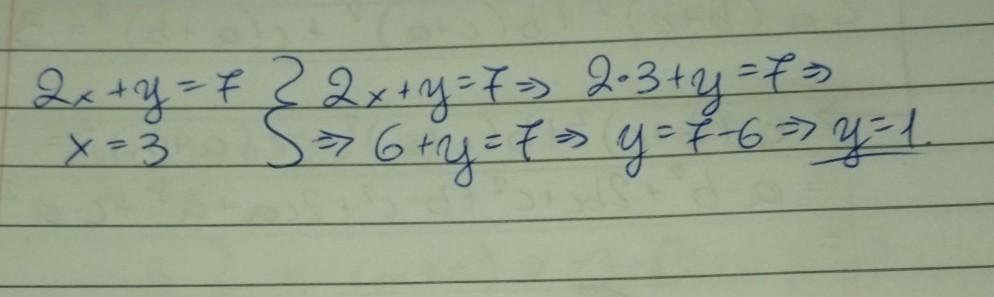 2x+y=7 } 2x+y=7 ⇒ 2·3+y=7 ⇒
x=3 ⇒ 6+y=7 ⇒ y=7-6 ⇒ y=1.